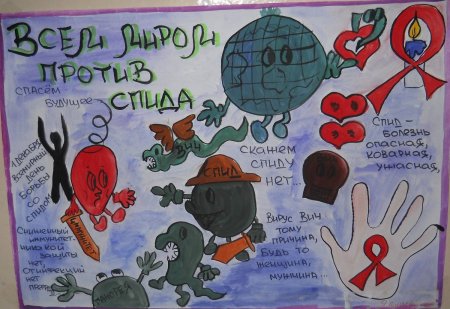 Всем миром
против
СПИДа
Спасём
будущее
1 декабря
Всемирный
день
борьбы
со
СПИДом
ВИЧ
СПИД
Скажем
СПИДу
нет...
СПИД –
болезнь
опасная,
коварная,
ужасная,
Иммунитет
Сниженный
иммунитет-
никакой
защиты
нет
От инфекции
нет
Вирус ВИЧ
тому
причина,
будь то
женщина,
мужчина...